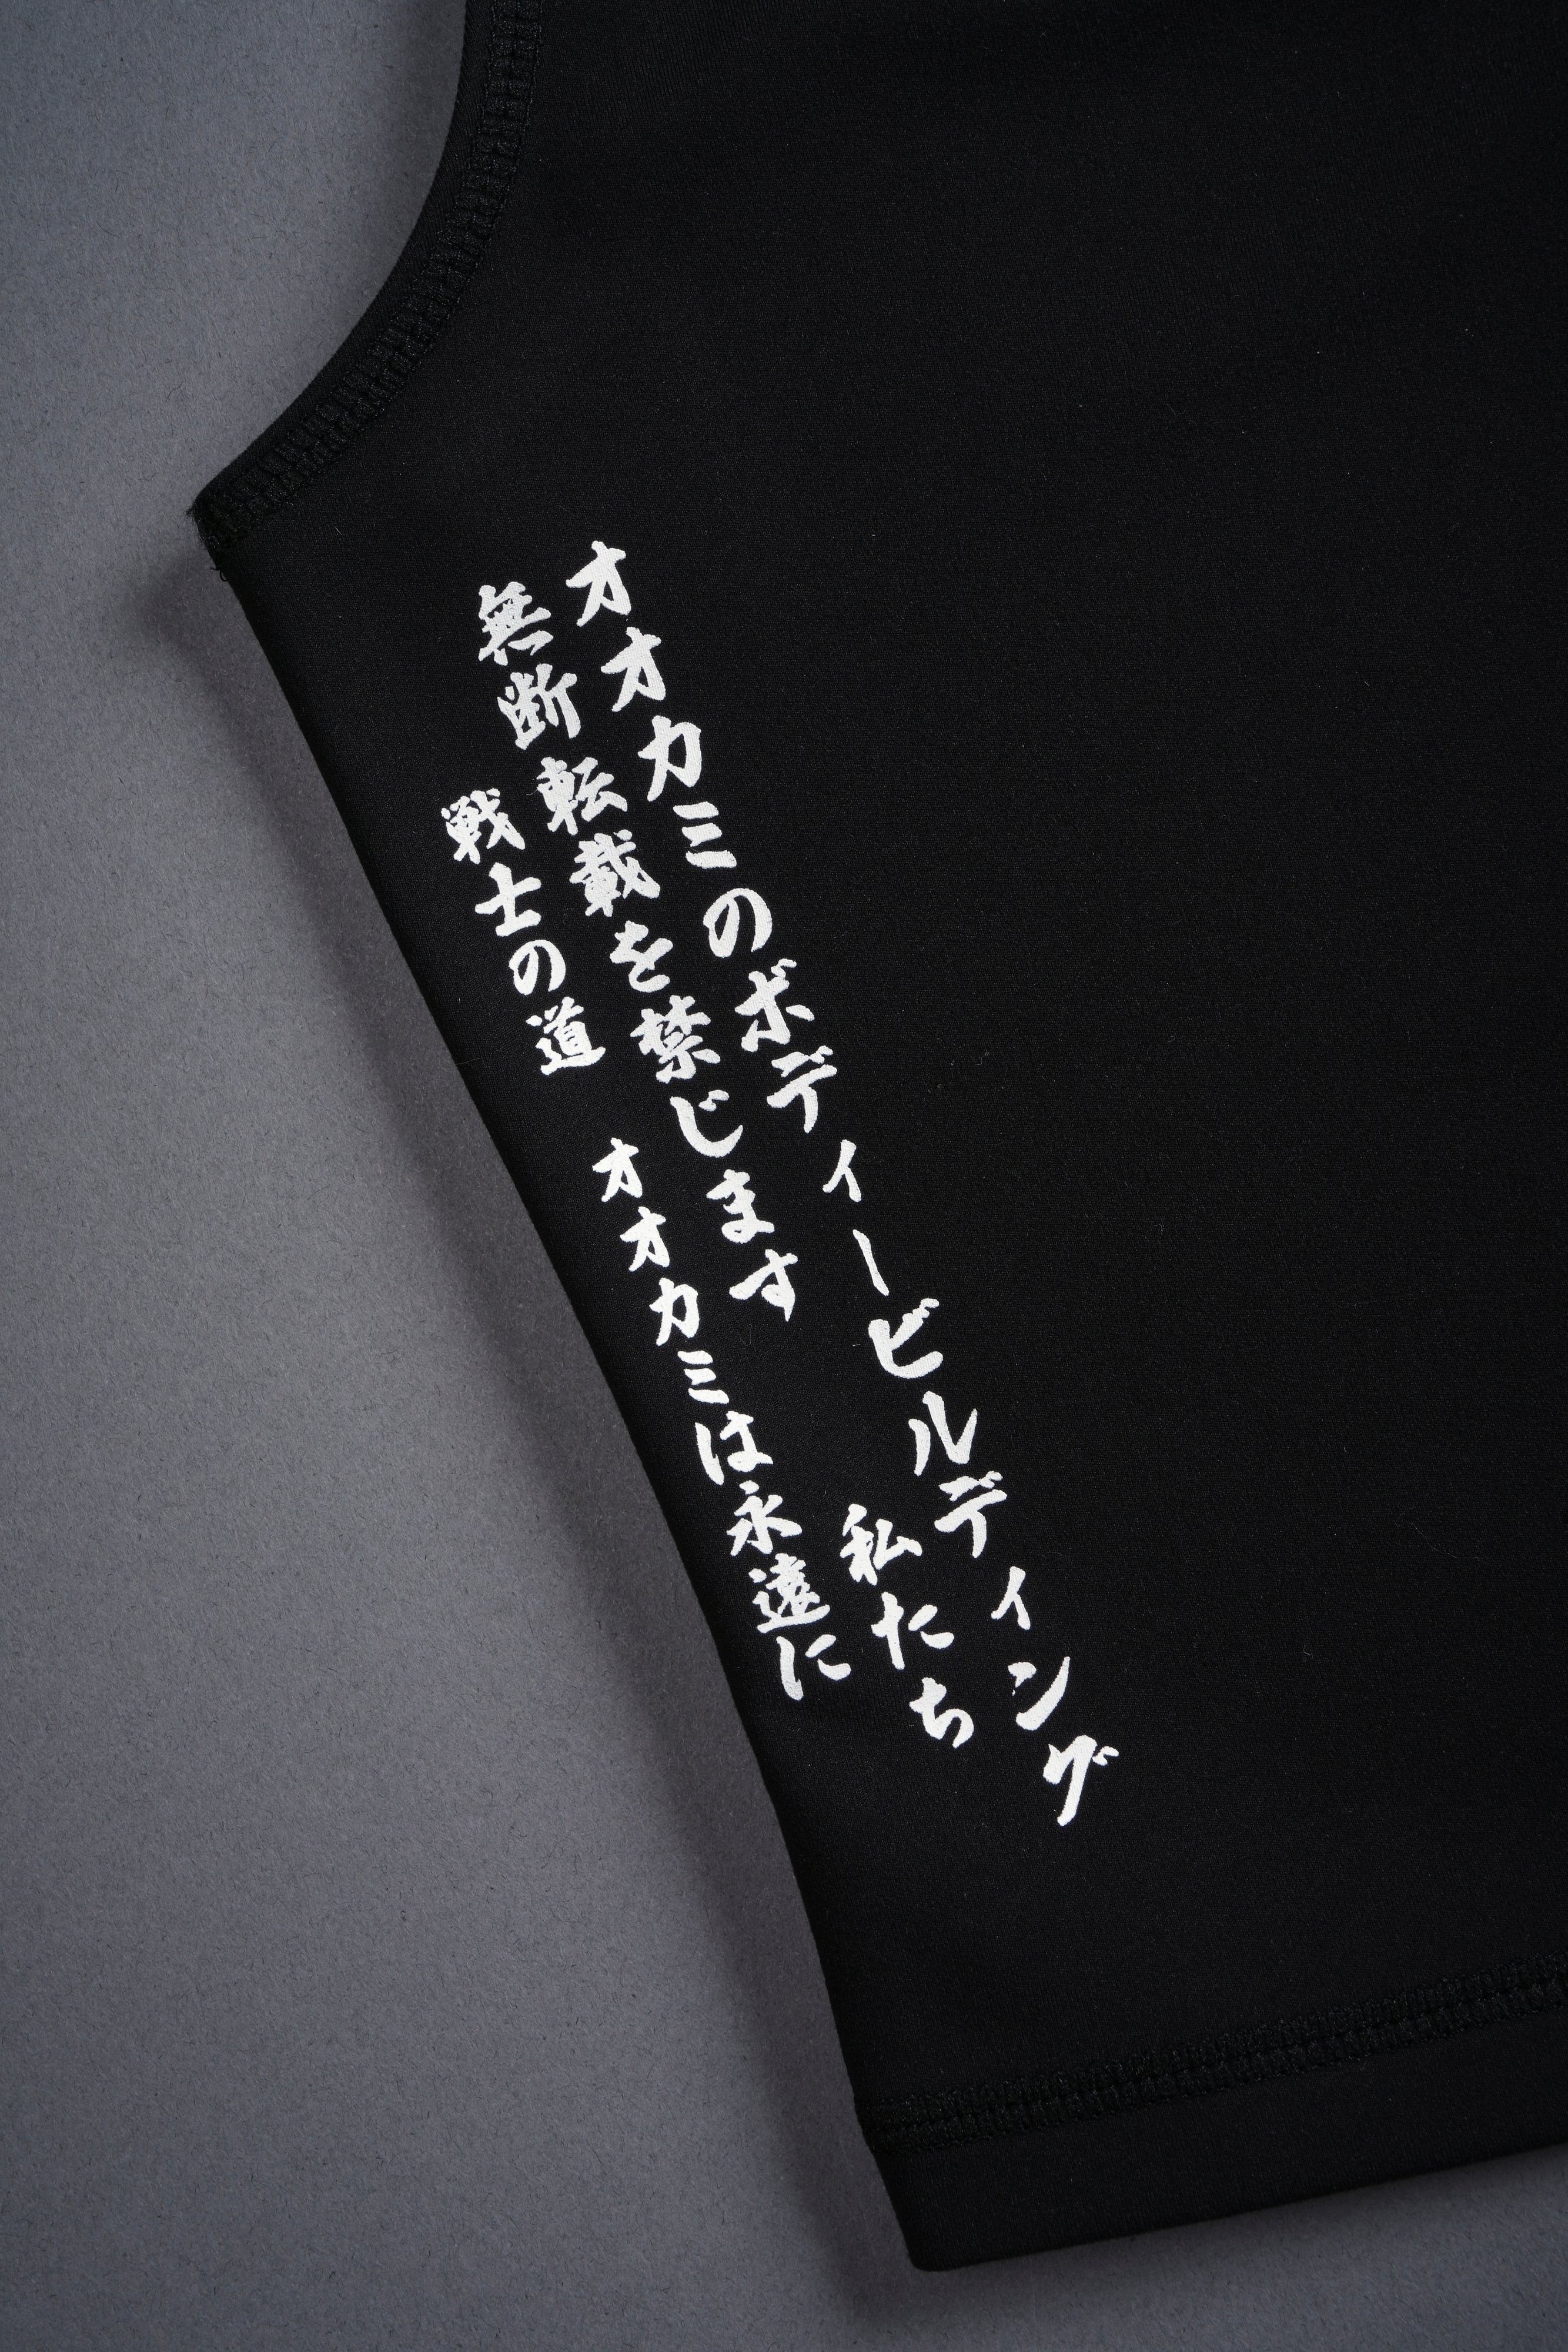 オオカミのボディービルディング
無断転載を禁じます
私たち
戦士の道
オオカミは永遠に